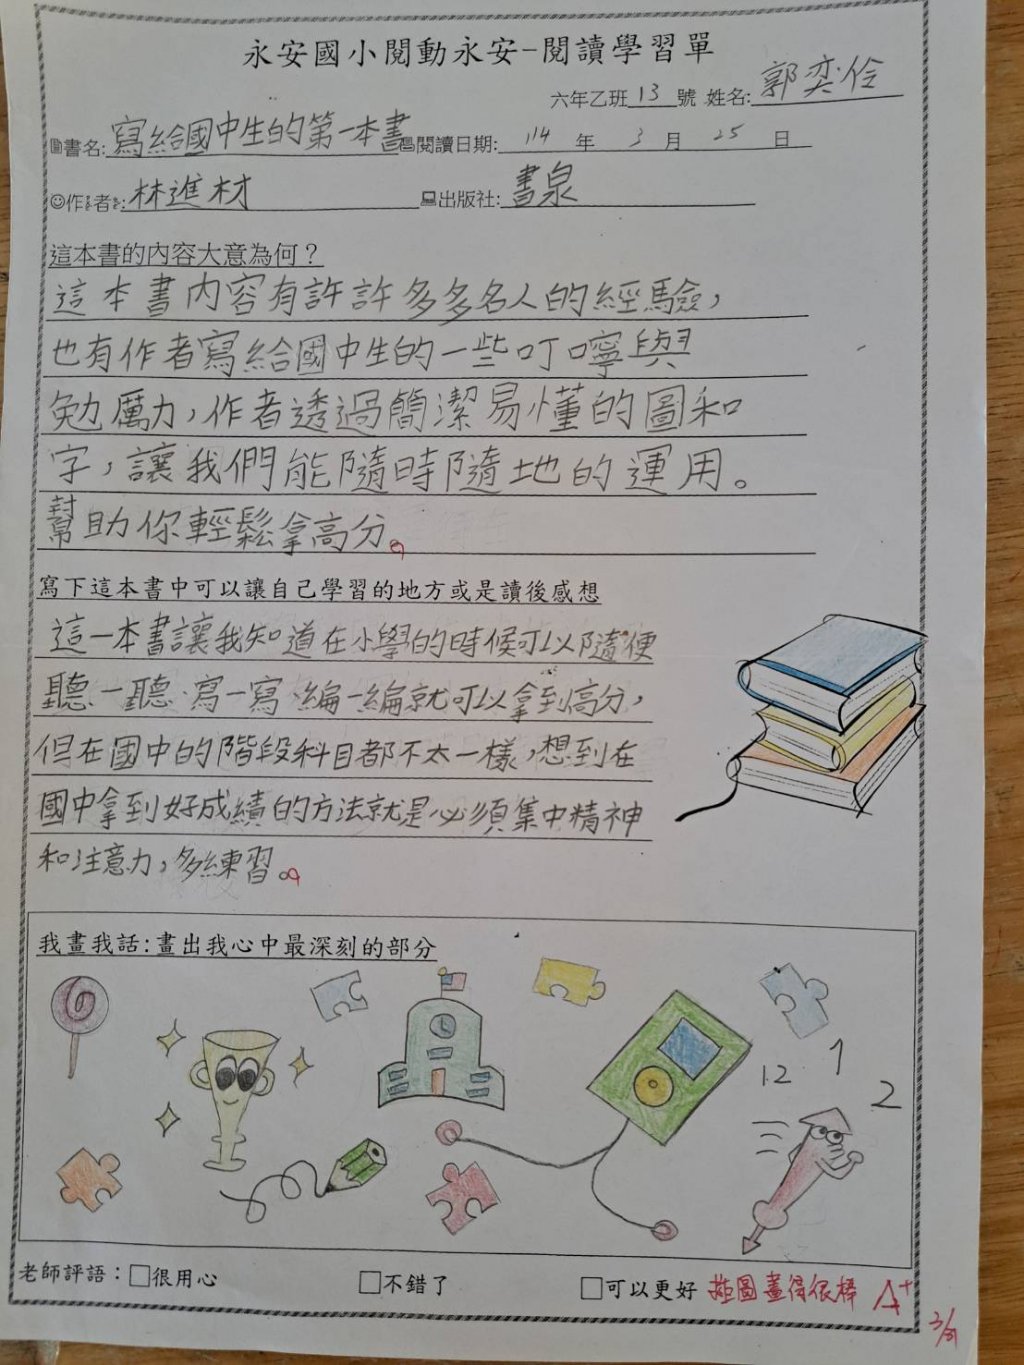 永安國小閱動永安-閱讀學習單
六年乙班 13 號 姓名: 郭奕伶
書名: 寫給國中生的第一本書 閱讀日期: 114 年 3 月 25 日
作者: 林進材 出版社: 書泉
這本書的內容大意為何？
這本書內容有許許多多名人的經驗，
也有作者寫給國中生的一些叮嚀與
勉厲力，作者透過簡潔易懂的圖和
字，讓我們能隨時隨地的運用。
幫助你輕鬆拿高分。
寫下這本書中可以讓自己學習的地方或是讀後感想
這一本書讓我知道在小學的時候可以隨便
聽一聽、寫一寫、編一編就可以拿到高分，
但在國中的階段科目都不太一樣，想到在
國中拿到好成績的方法就是必須集中精神
和注意力，多練習。
我畫我話:畫出我心中最深刻的部分
12 1 2
老師評語：□很用心 □不錯了 □可以更好 插圖畫得很棒 A+